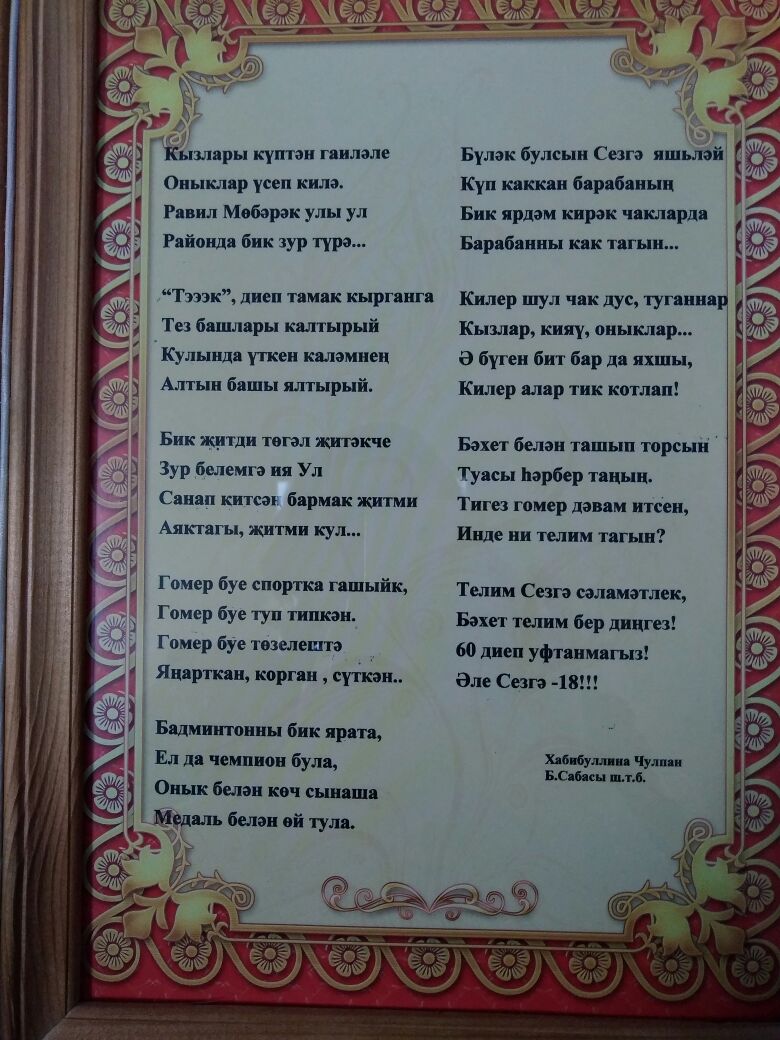 Кызлары күптән гаиләле
Оныклар үсеп килә.
Равил Мөбәрәк улы ул
Районда бик зур түрә...
“Тэээк”, диеп тамак кырганга
Тез башлары калтырый
Кулында үткен каләмнең
Алтын башы ялтырый.
Бик җитди төгәл җитәкче
Зур белемгә ия Ул
Санап китсәң бармак җитми
Аяктагы, җитми кул...
Гомер буе спортка гашыйк,
Гомер буе туп типкән.
Гомер буе төзелештә
Яңарткан, корган , сүткән..
Бадминтонны бик ярата,
Ел да чемпион була,
Онык белән көч сынаша
Медаль белән өй тула.
Бүләк булсын Сезгә яшьләй
Күп каккан барабаның
Бик ярдәм кирәк чакларда
Барабанны как тагын...
Килер шул чак дус, туганнар
Кызлар, кияү, оныклар...
Ә бүген бит бар да яхшы,
Килер алар тик котлап!
Бәхет белән ташып торсын
Туасы һәрбер таңың.
Тигез гомер дәвам итсен,
Инде ни телим тагын?
Телим Сезгә сәламәтлек,
Бәхет телим бер диңгез!
60 диеп уфтанмагыз!
Әле Сезгә -18!!!
Хабибуллина Чулпан
Б.Сабасы ш.т.б.